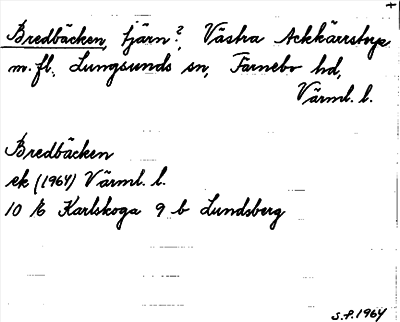 Bredbäcken, tjärn?, Västra Ackkärrstorp
m. fl., Lungsunds sn, Färnebo hd,
Värml. l.
Bredbäcken
ek (1964) Värml. l.
10 E Karlskoga 9 b Lundsberg
S.P. 1964